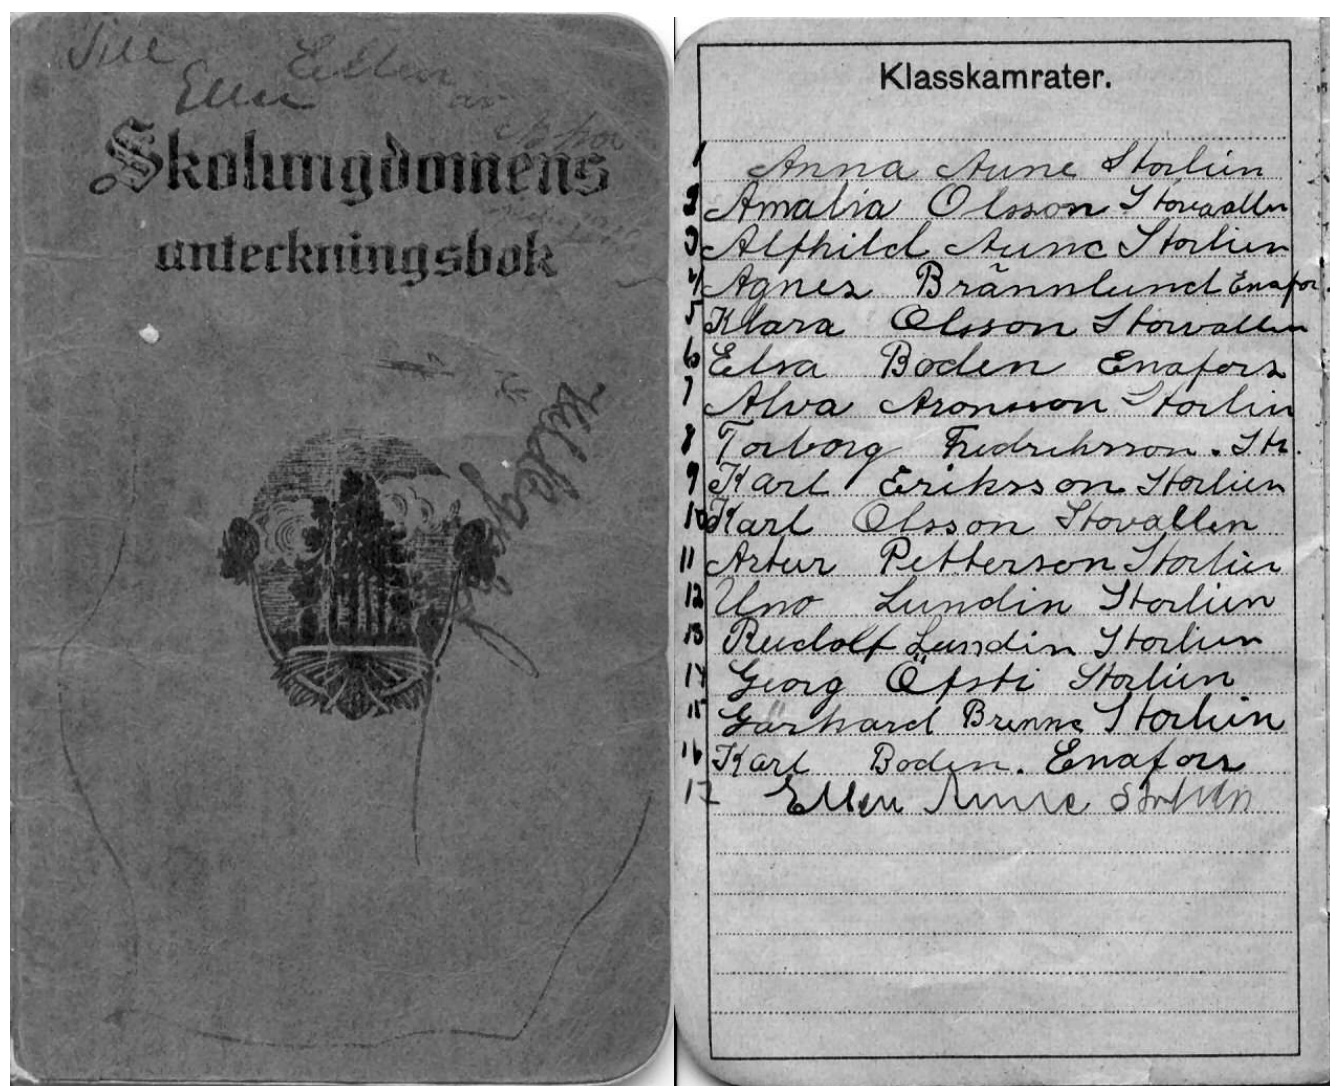 Till
Ellen
Ellen
av
Skolungdomens
anteckningsbok
Hildegard
Klasskamrater.
1 Anna Aune Storlien
2 Amalia Olsson Storvallen
3 Alfhild Aune Storlien
4 Agnes Brännlund Enafor.
5 Klara Olsson Storvallen
6 Elsa Boden Enafors
7 Alva Aronsson Storlin
8 Torborg Fredriksson. Str.
9 Karl Eriksson Storlien
10 Karl Olsson Storvallen
11 Artur Petterson Storlien
12 Uno Lundin Storlien
13 Rudolf Lundin Storlien
14 Georg Öfsti Storlien
15 Gärhard Brenne Storlien
16 Karl Boden. Enafors
17 Ellen Aune Storlien